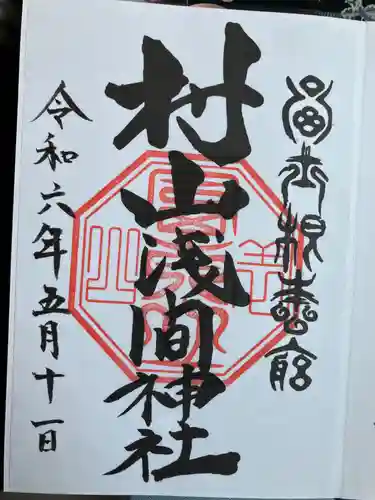 富士根本宮
村山浅間神社
令和六年五月十一日